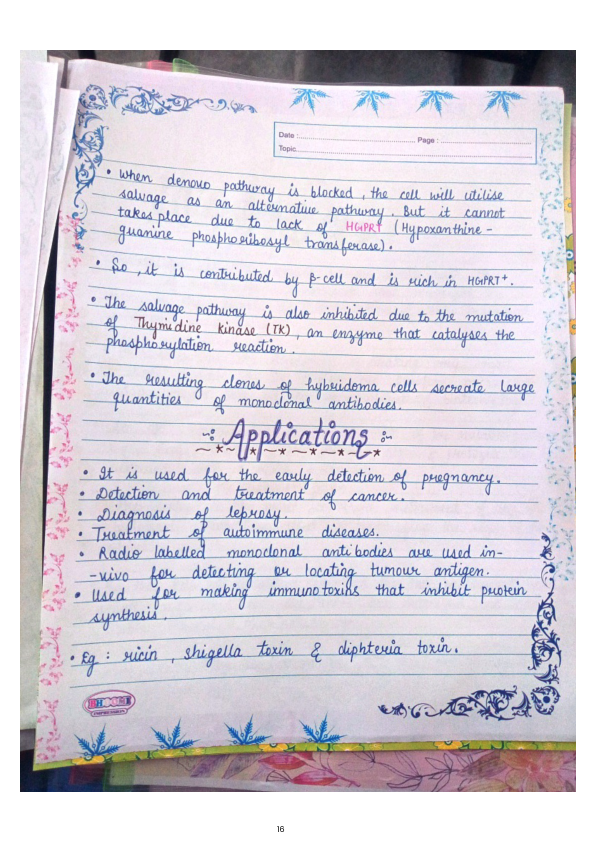 Date : Page :
Topic
• When denovo pathway is blocked, the cell will utilise
salvage as an alternative pathway. But it cannot
takes place due to lack of HGPRT (Hypoxanthine -
guanine phosphoribosyl transferase).
• So, it is contributed by β-cell and is rich in HGPRT⁺.
• The salvage pathway is also inhibited due to the mutation
of Thymidine kinase (TK), an enzyme that catalyses the
phosphorylation reaction.
• The resulting clones of hybridoma cells secreate large
quantities of monoclonal antibodies.
Applications
• It is used for the early detection of pregnancy.
• Detection and treatment of cancer.
• Diagnosis of leprosy.
• Treatment of autoimmune diseases.
• Radio labelled monoclonal antibodies are used in-
-vivo for detecting or locating tumour antigen.
• Used for making immunotoxins that inhibit protein
synthesis.
• Eg : ricin, shigella toxin & diphteria toxin.
16